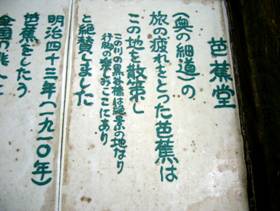 芭蕉堂
(奥の細道)の
旅の疲れをとった芭蕉は
この地を散策し
この川の黒谷橋は絶景の地なり
行脚の楽しみここにあり
と絶賛しました
明治四十三年(一九一〇年)
芭蕉をしたう
全国の